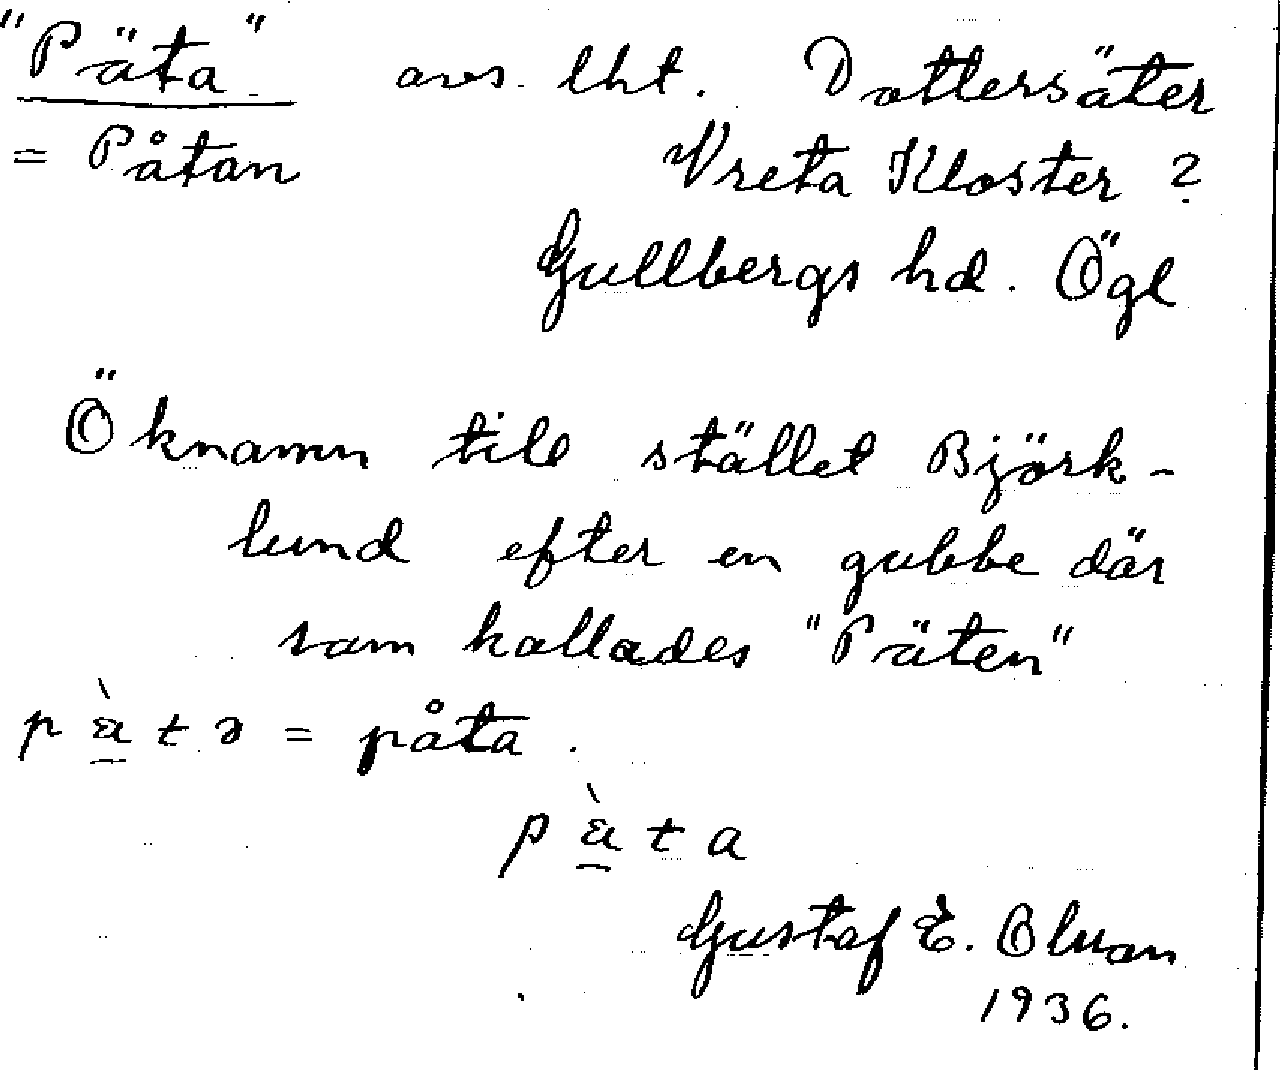 "Päta" avs. lht. Dottersäter
= Påtan Vreta Kloster ?
Gullbergs hd. Ögl
Öknamn till stället Björk-
lund efter en gubbe där
som kallades "Päten"
= påta.
Gustaf E.
1936.